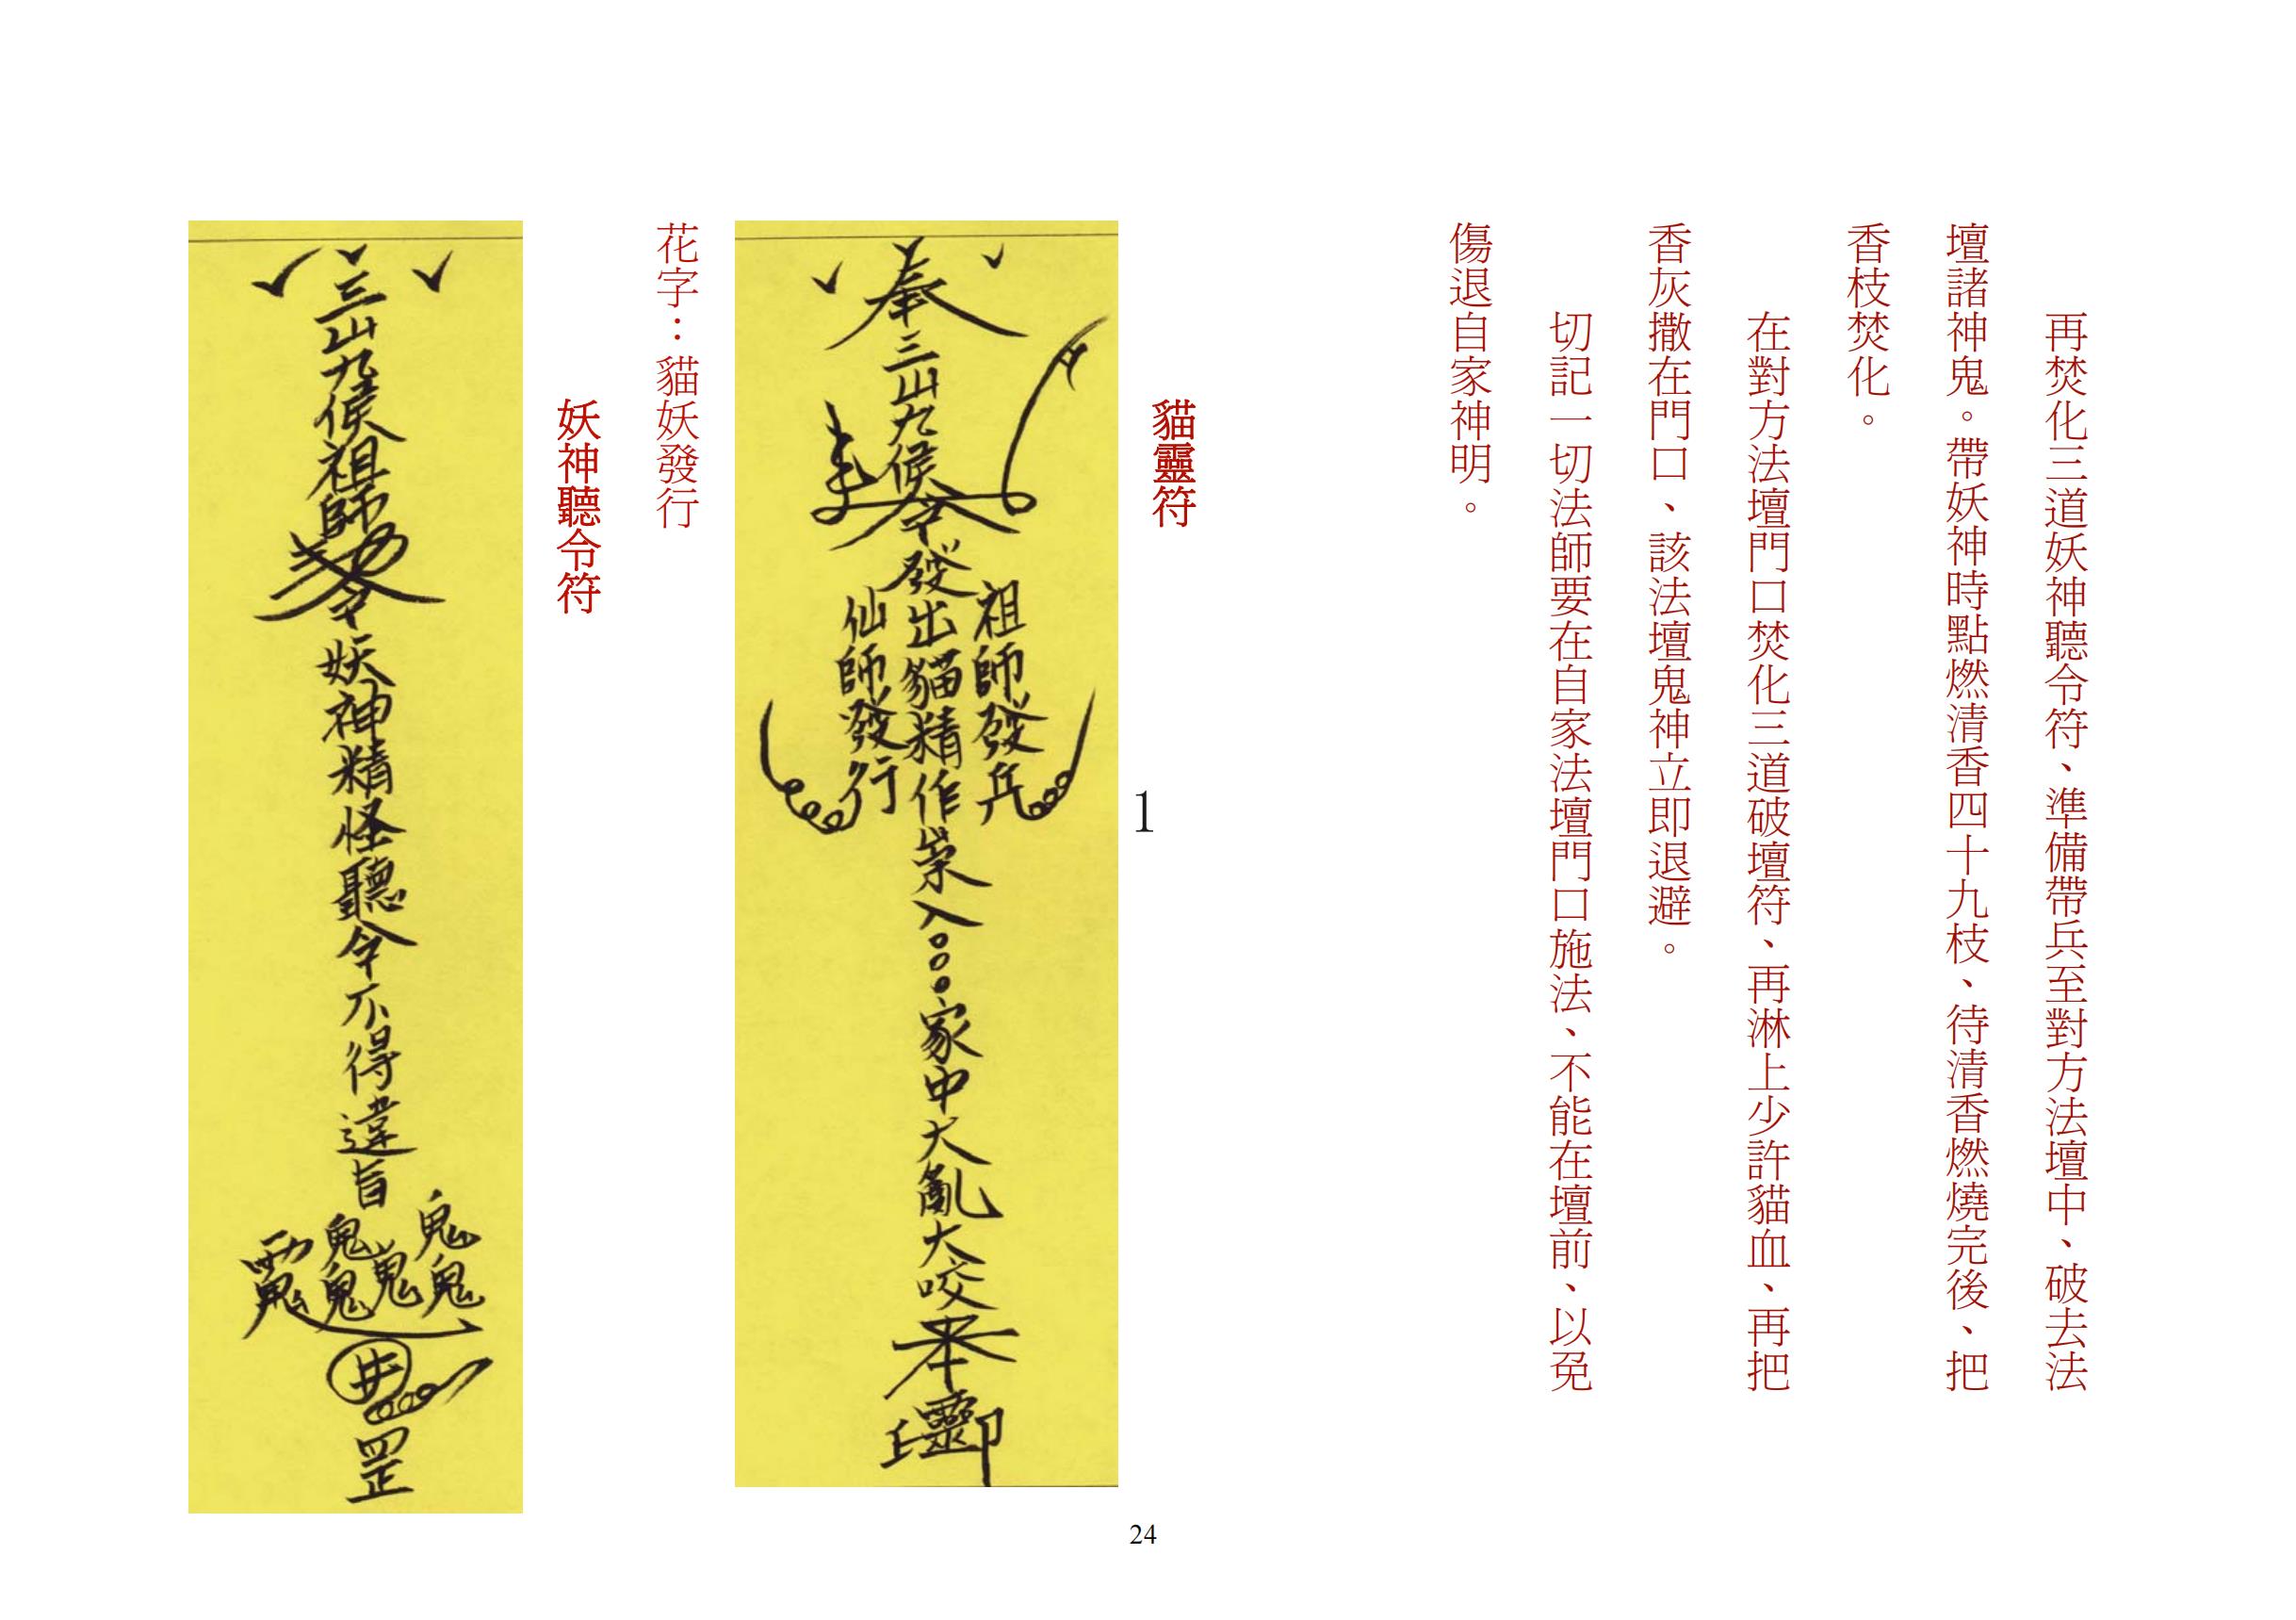 再焚化三道妖神聽令符、準備帶兵至對方法壇中、破去法
壇諸神鬼。帶妖神時點燃清香四十九枝、待清香燃燒完後、把
香枝焚化。
在對方法壇門口焚化三道破壇符、再淋上少許貓血、再把
香灰撒在門口、該法壇鬼神立即退避。
切記一切法師要在自家法壇門口施法、不能在壇前、以免
傷退自家神明。
貓靈符
1
奉三山九侯令發出貓精作祟入○○○家中大亂大咬
祖師發兵
仙師發行
花字：貓妖發行
妖神聽令符
三山九侯祖師勅令妖神精怪聽令不得違旨
鬼鬼鬼鬼鬼
井
罡
24